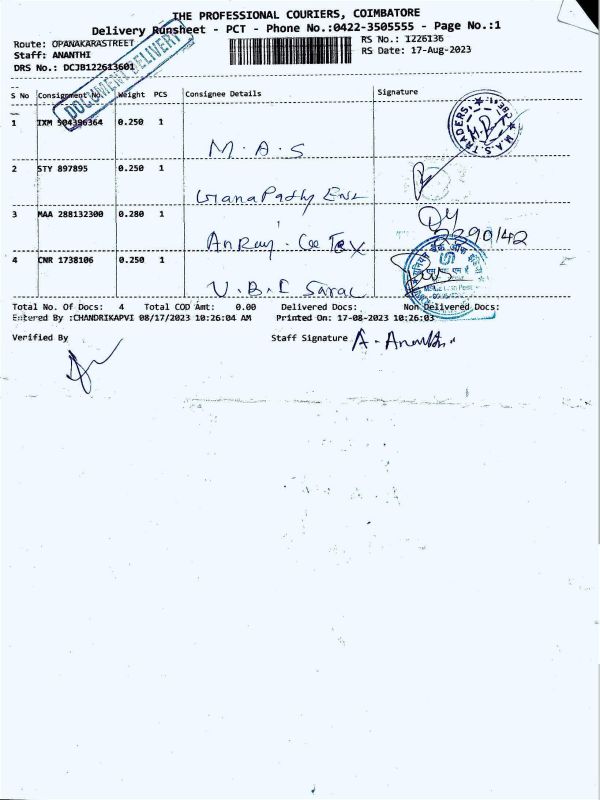 THE PROFESSIONAL COURIERS, COIMBATORE
Delivery Runsheet - PCT - Phone No.:0422-3505555 - Page No.:1
Route: OPANAKARASTREET
RS No.: 1226136
Staff: ANANTHI
RS Date: 17-Aug-2023
DRS No.: DCJB122613601
DOCUMENT DELIVERY
S No Consignment No. Weight PCS Consignee Details Signature
1 IXM 504396364 0.250 1 M.A.S
M.A.S. TRADERS
2 STY 897895 0.250 1 GanaPathy Ent
3 MAA 288132300 0.280 1
4 CNR 1738106 0.250 1 U.B.I
Total No. Of Docs: 4 Total COD Amt: 0.00 Delivered Docs: Non Delivered Docs:
Entered By :CHANDRIKAPVI 08/17/2023 10:26:04 AM Printed On: 17-08-2023 10:26:03
Verified By Staff Signature A. Ananthi